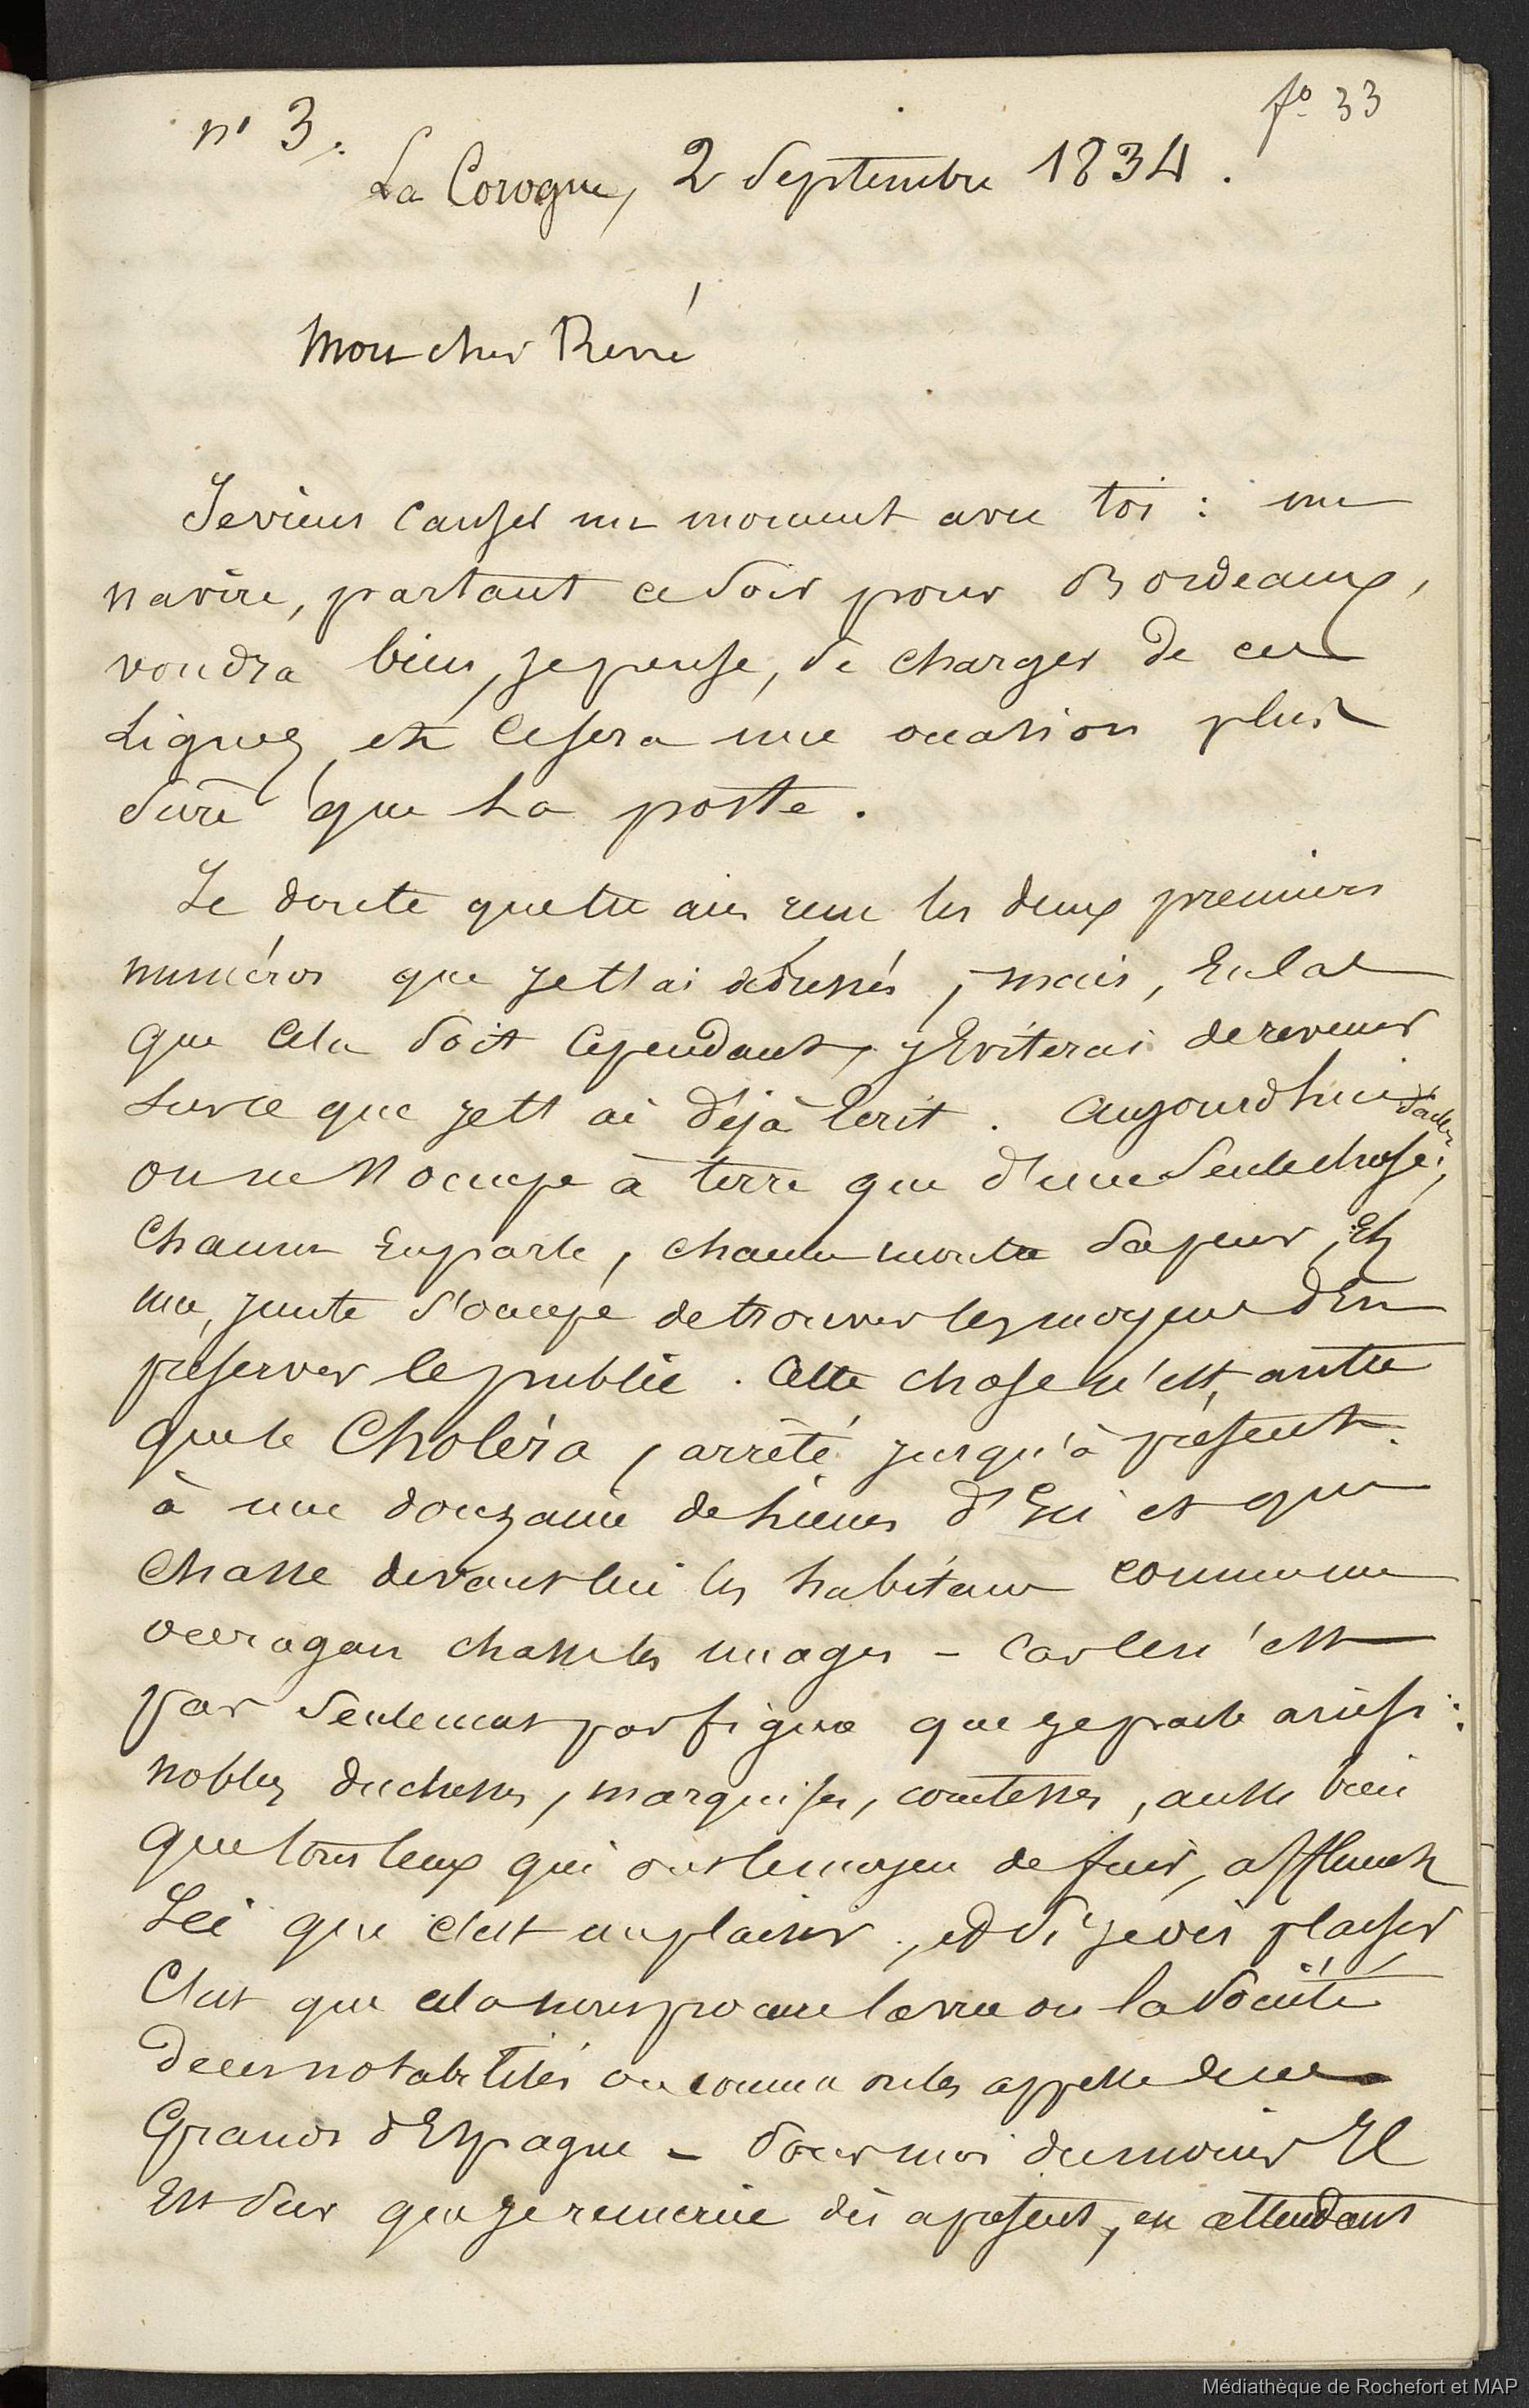 f° 33
n° 3.
La Corogne, 2 Septembre 1834.
Mon cher René
Je viens causer un moment avec toi : un
navire, partant ce soir pour Bordeaux,
voudra bien, je pense, se charger de ces
lignes, et ce sera une occasion plus
sûre que la poste.
Je doute que tu aies reçu les deux premiers
numéros que je t'ai adressés, mais, en cas
que cela soit cependant, j'éviterai de revenir
sur ce que je t'ai déjà écrit. Aujourd'hui
on ne s'occupe à terre que d'une seule chose;
chacun en parle, chacun montre sa peur, et
une junte s'occupe de trouver les moyens d'en
préserver le public. Cette chose n'est autre
que le Choléra, arrêté jusqu'à présent
à une douzaine de lieues d'ici et qui
chasse devant lui les habitans comme un
ouragan chasse les nuages - car ce n'est
pas seulement par figure que je parle ainsi :
nobles duchesses, marquises, comtesses, aussi bien
que tous ceux qui ont le moyen de fuir, affluent
ici que c'est un plaisir, et si je dis plaisir
c'est que cela nous procure la vue ou la société
de ces notabilités ou comme on les appelle de ces
Grands d'Espagne - Pour moi du moins il
est sûr que je remercie dès à présent, en attendant
Médiathèque de Rochefort et MAP